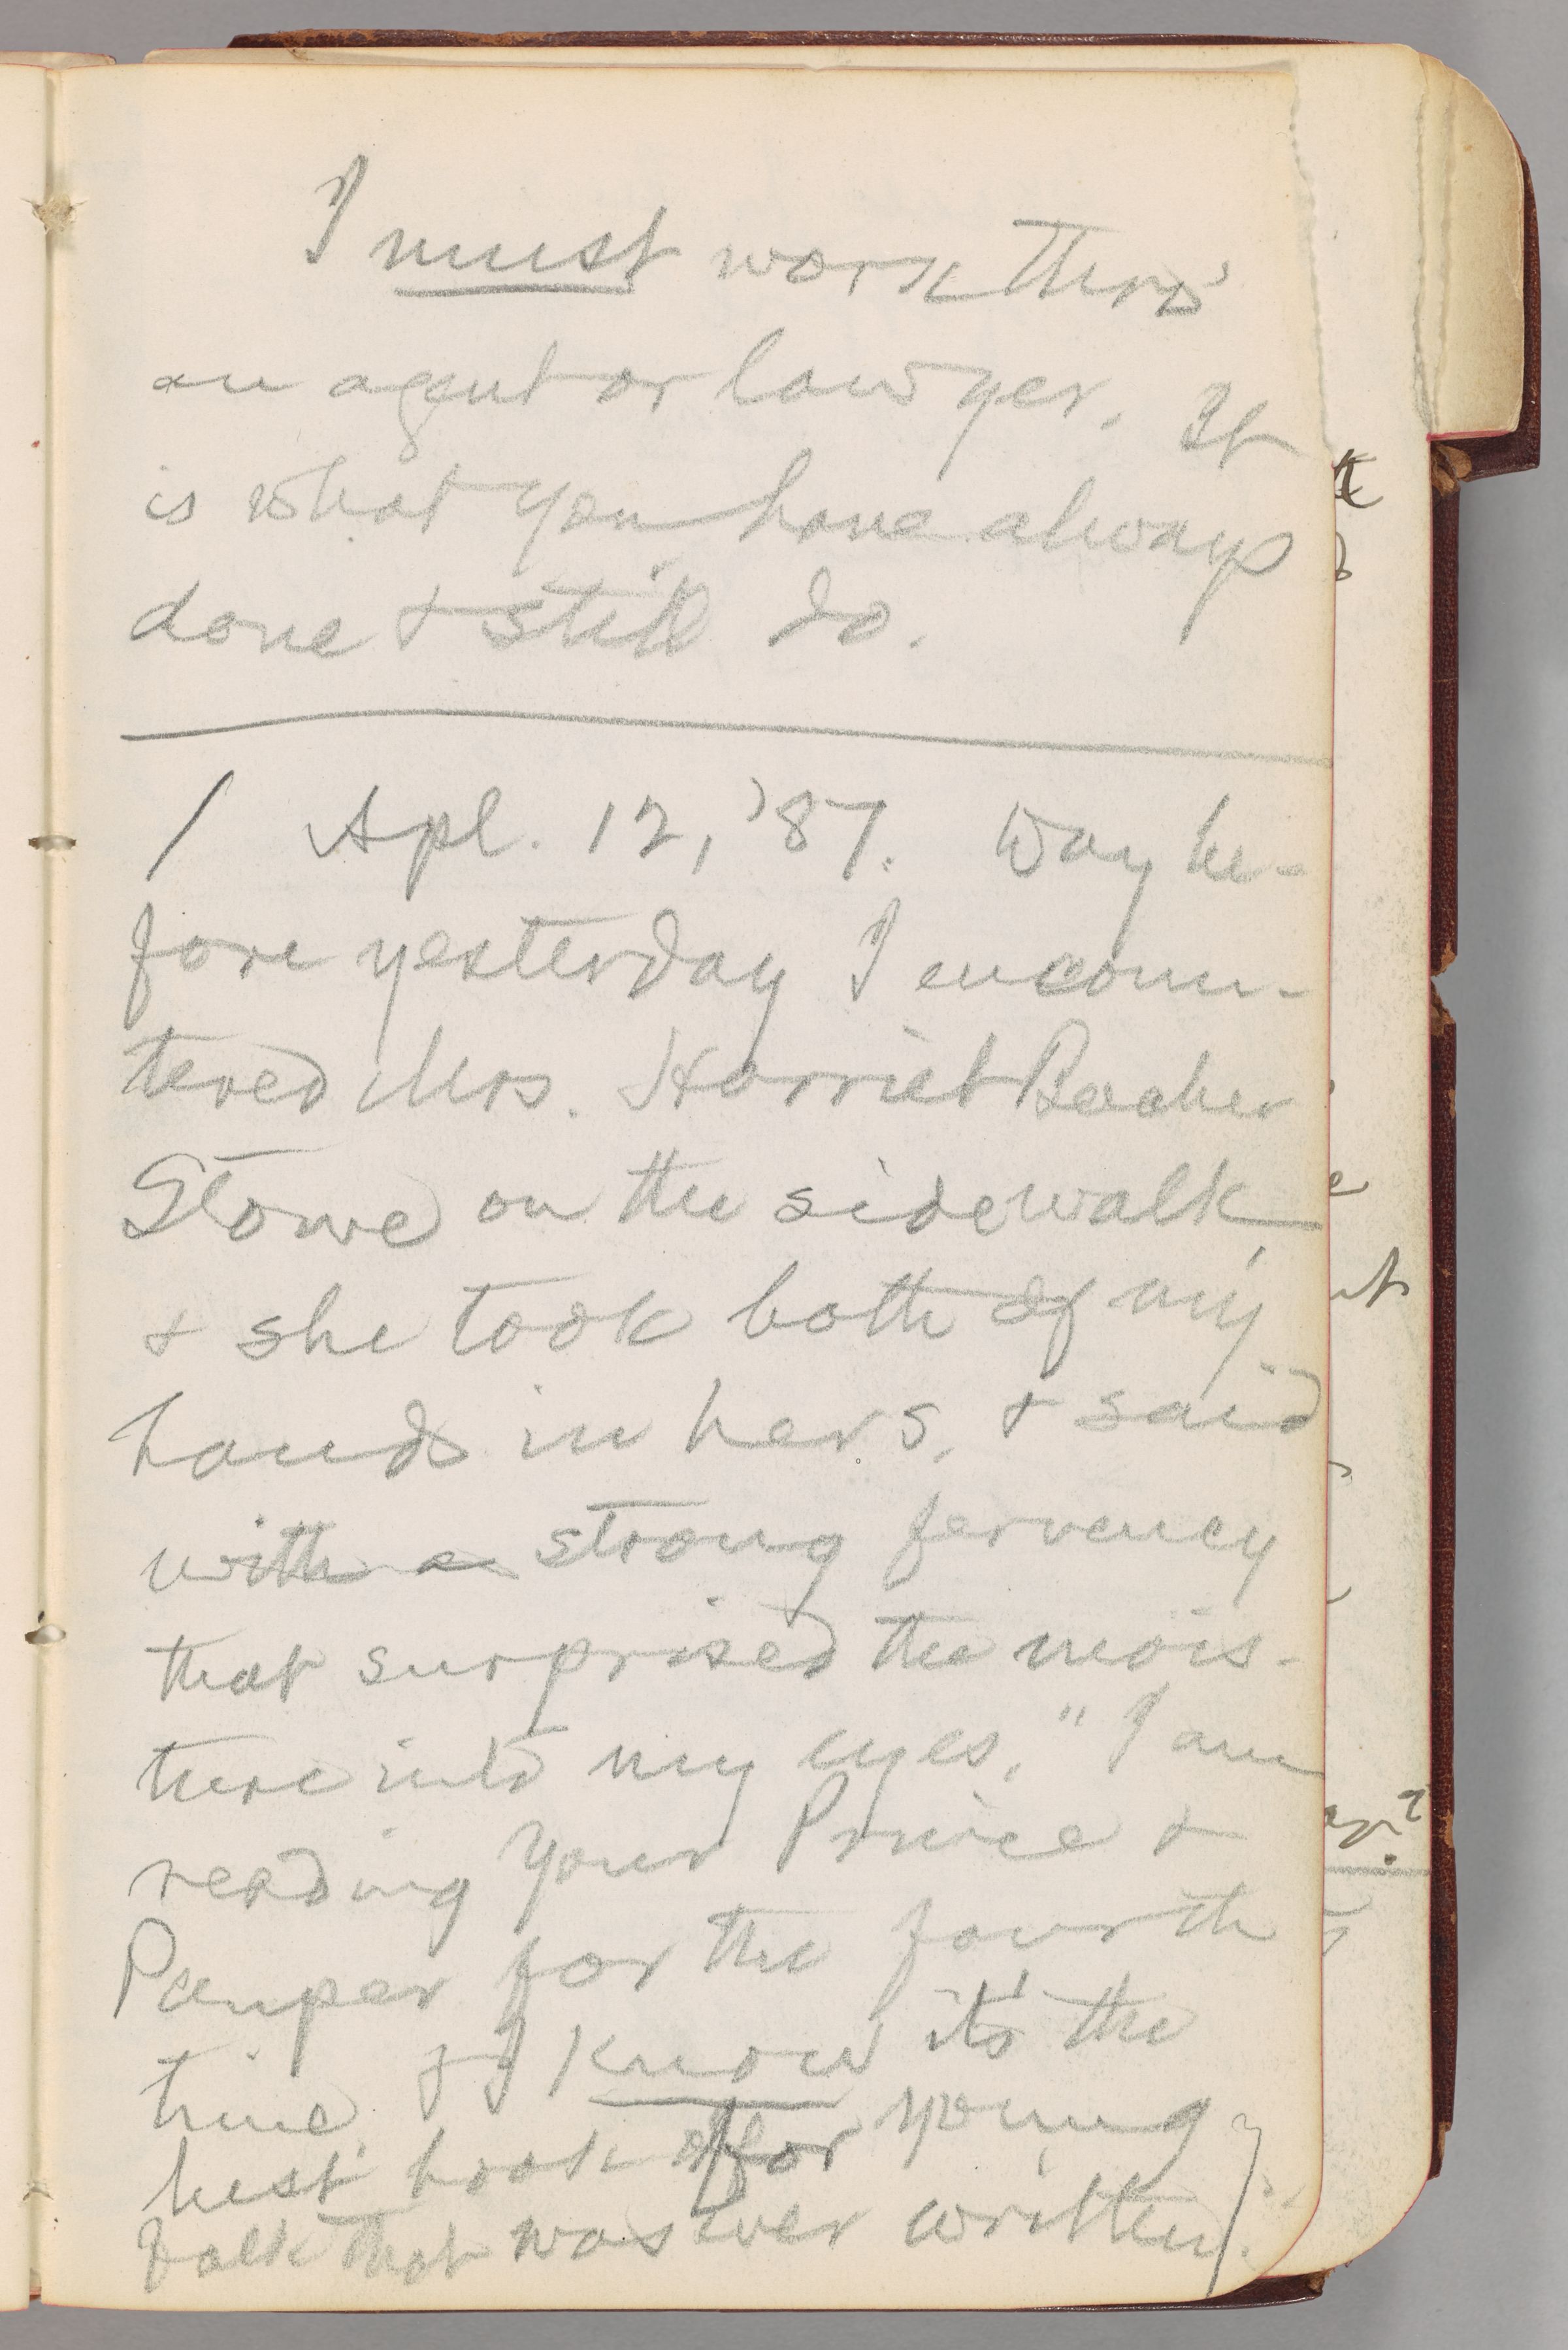 I must work thro'
an agent or lawyer. It
is what you have always
done & still do.
/ Apl. 12, '87. Way be-
fore yesterday I encoun-
tered Mrs. Harriet Beecher
Stowe on the sidewalk,
& she took both of my
hands in hers, & said
with a strong fervency
that surprised the mois-
ture into my eyes, "I am
reading your Prince &
Pauper for the fourth
time, & I know it's the
best book for young
folk that was ever written."